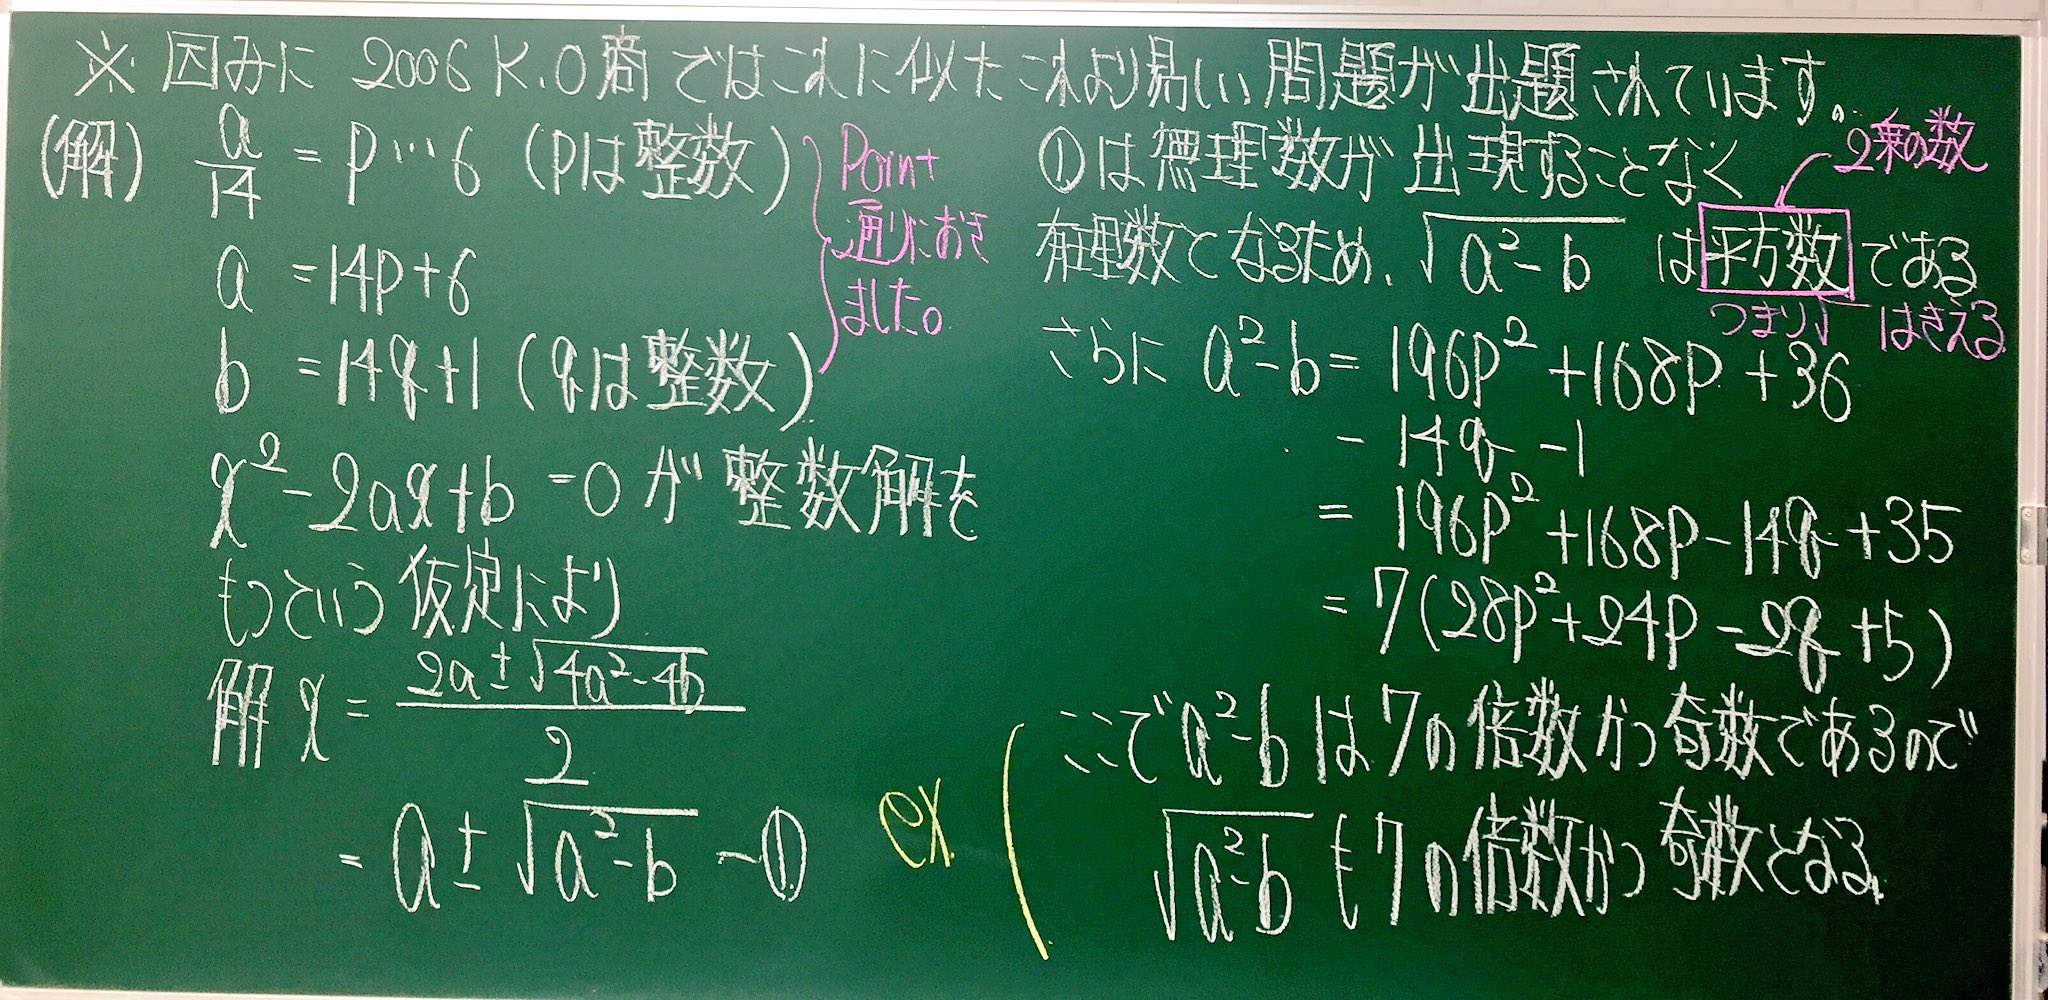 ※ 因みに 2006 K.O商ではこれに似たこれより易しい問題が出題されています。
(解) a/14 = p…6 (pは整数)
a = 14p+6
b = 14q+1 (qは整数)
Point
通りにおき
ました。
x²-2ax+b=0 が整数解を
もつという仮定により
解 x = (2a±√(4a²-4b))/2
= a±√(a²-b) -①
①は無理数が出現することなく
2乗の数
有理数となるため、√(a²-b) は平方数である
つまり√ はきえる
さらに a²-b = 196p²+168p+36
-14q-1
= 196p²+168p-14q+35
= 7(28p²+24p-2q+5)
ex
ここで a²-b は7の倍数かつ奇数であるので
√(a²-b) も7の倍数かつ奇数となる。